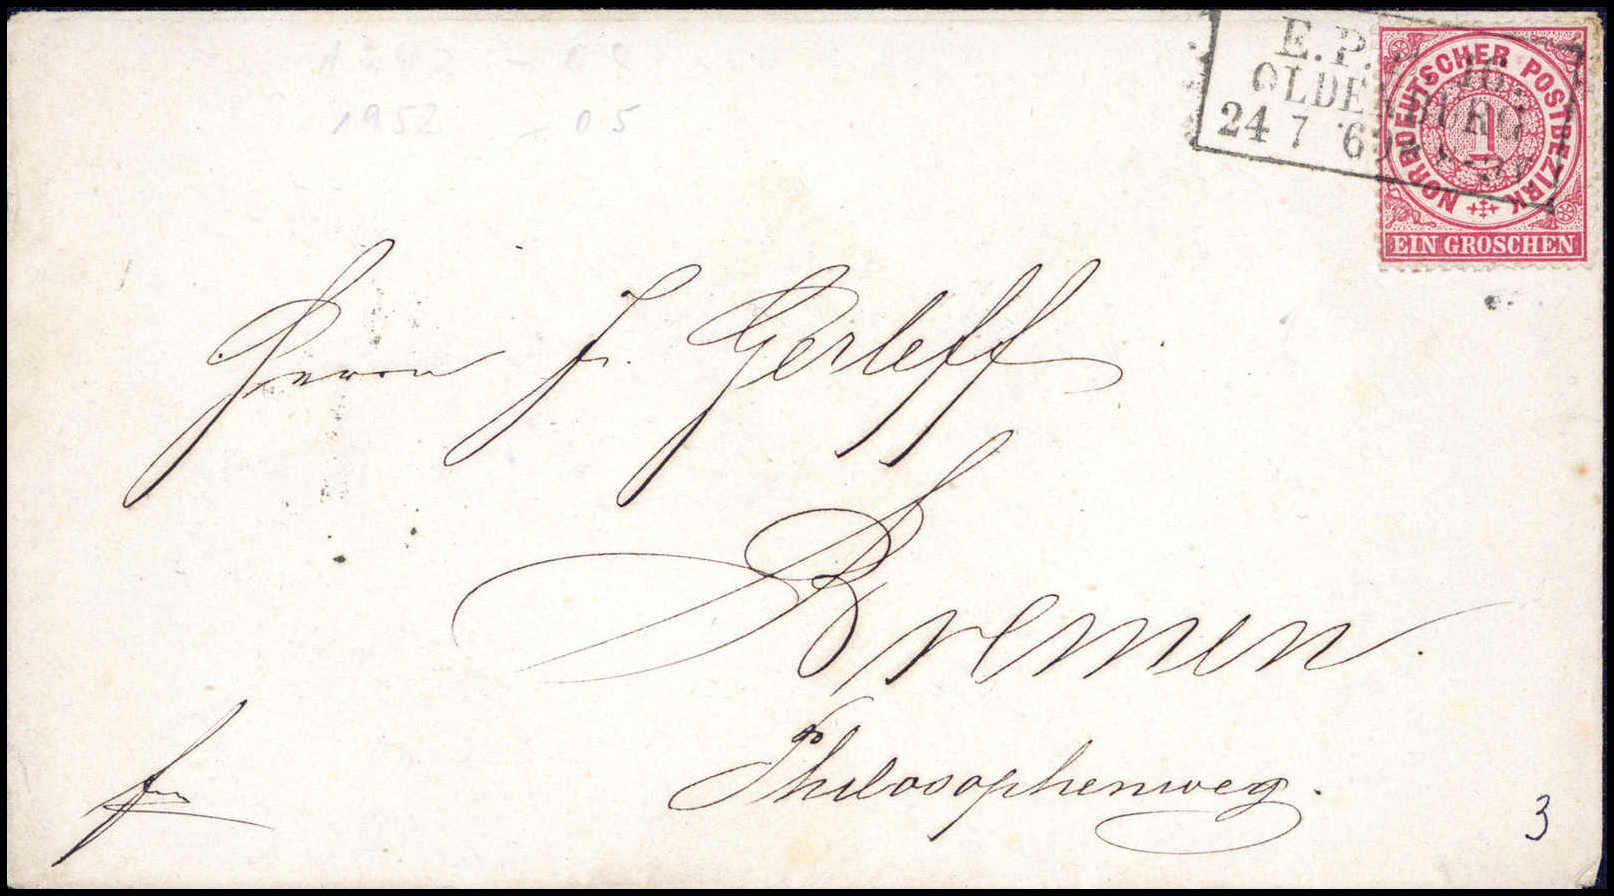 E.P. 16.
OLDENBURG
24 7 69
NORDDEUTSCHER POSTBEZIRK
1
EIN GROSCHEN
1952 - 05
Herrn J. Gerleff
Bremen.
Philosophenweg.
fr
3